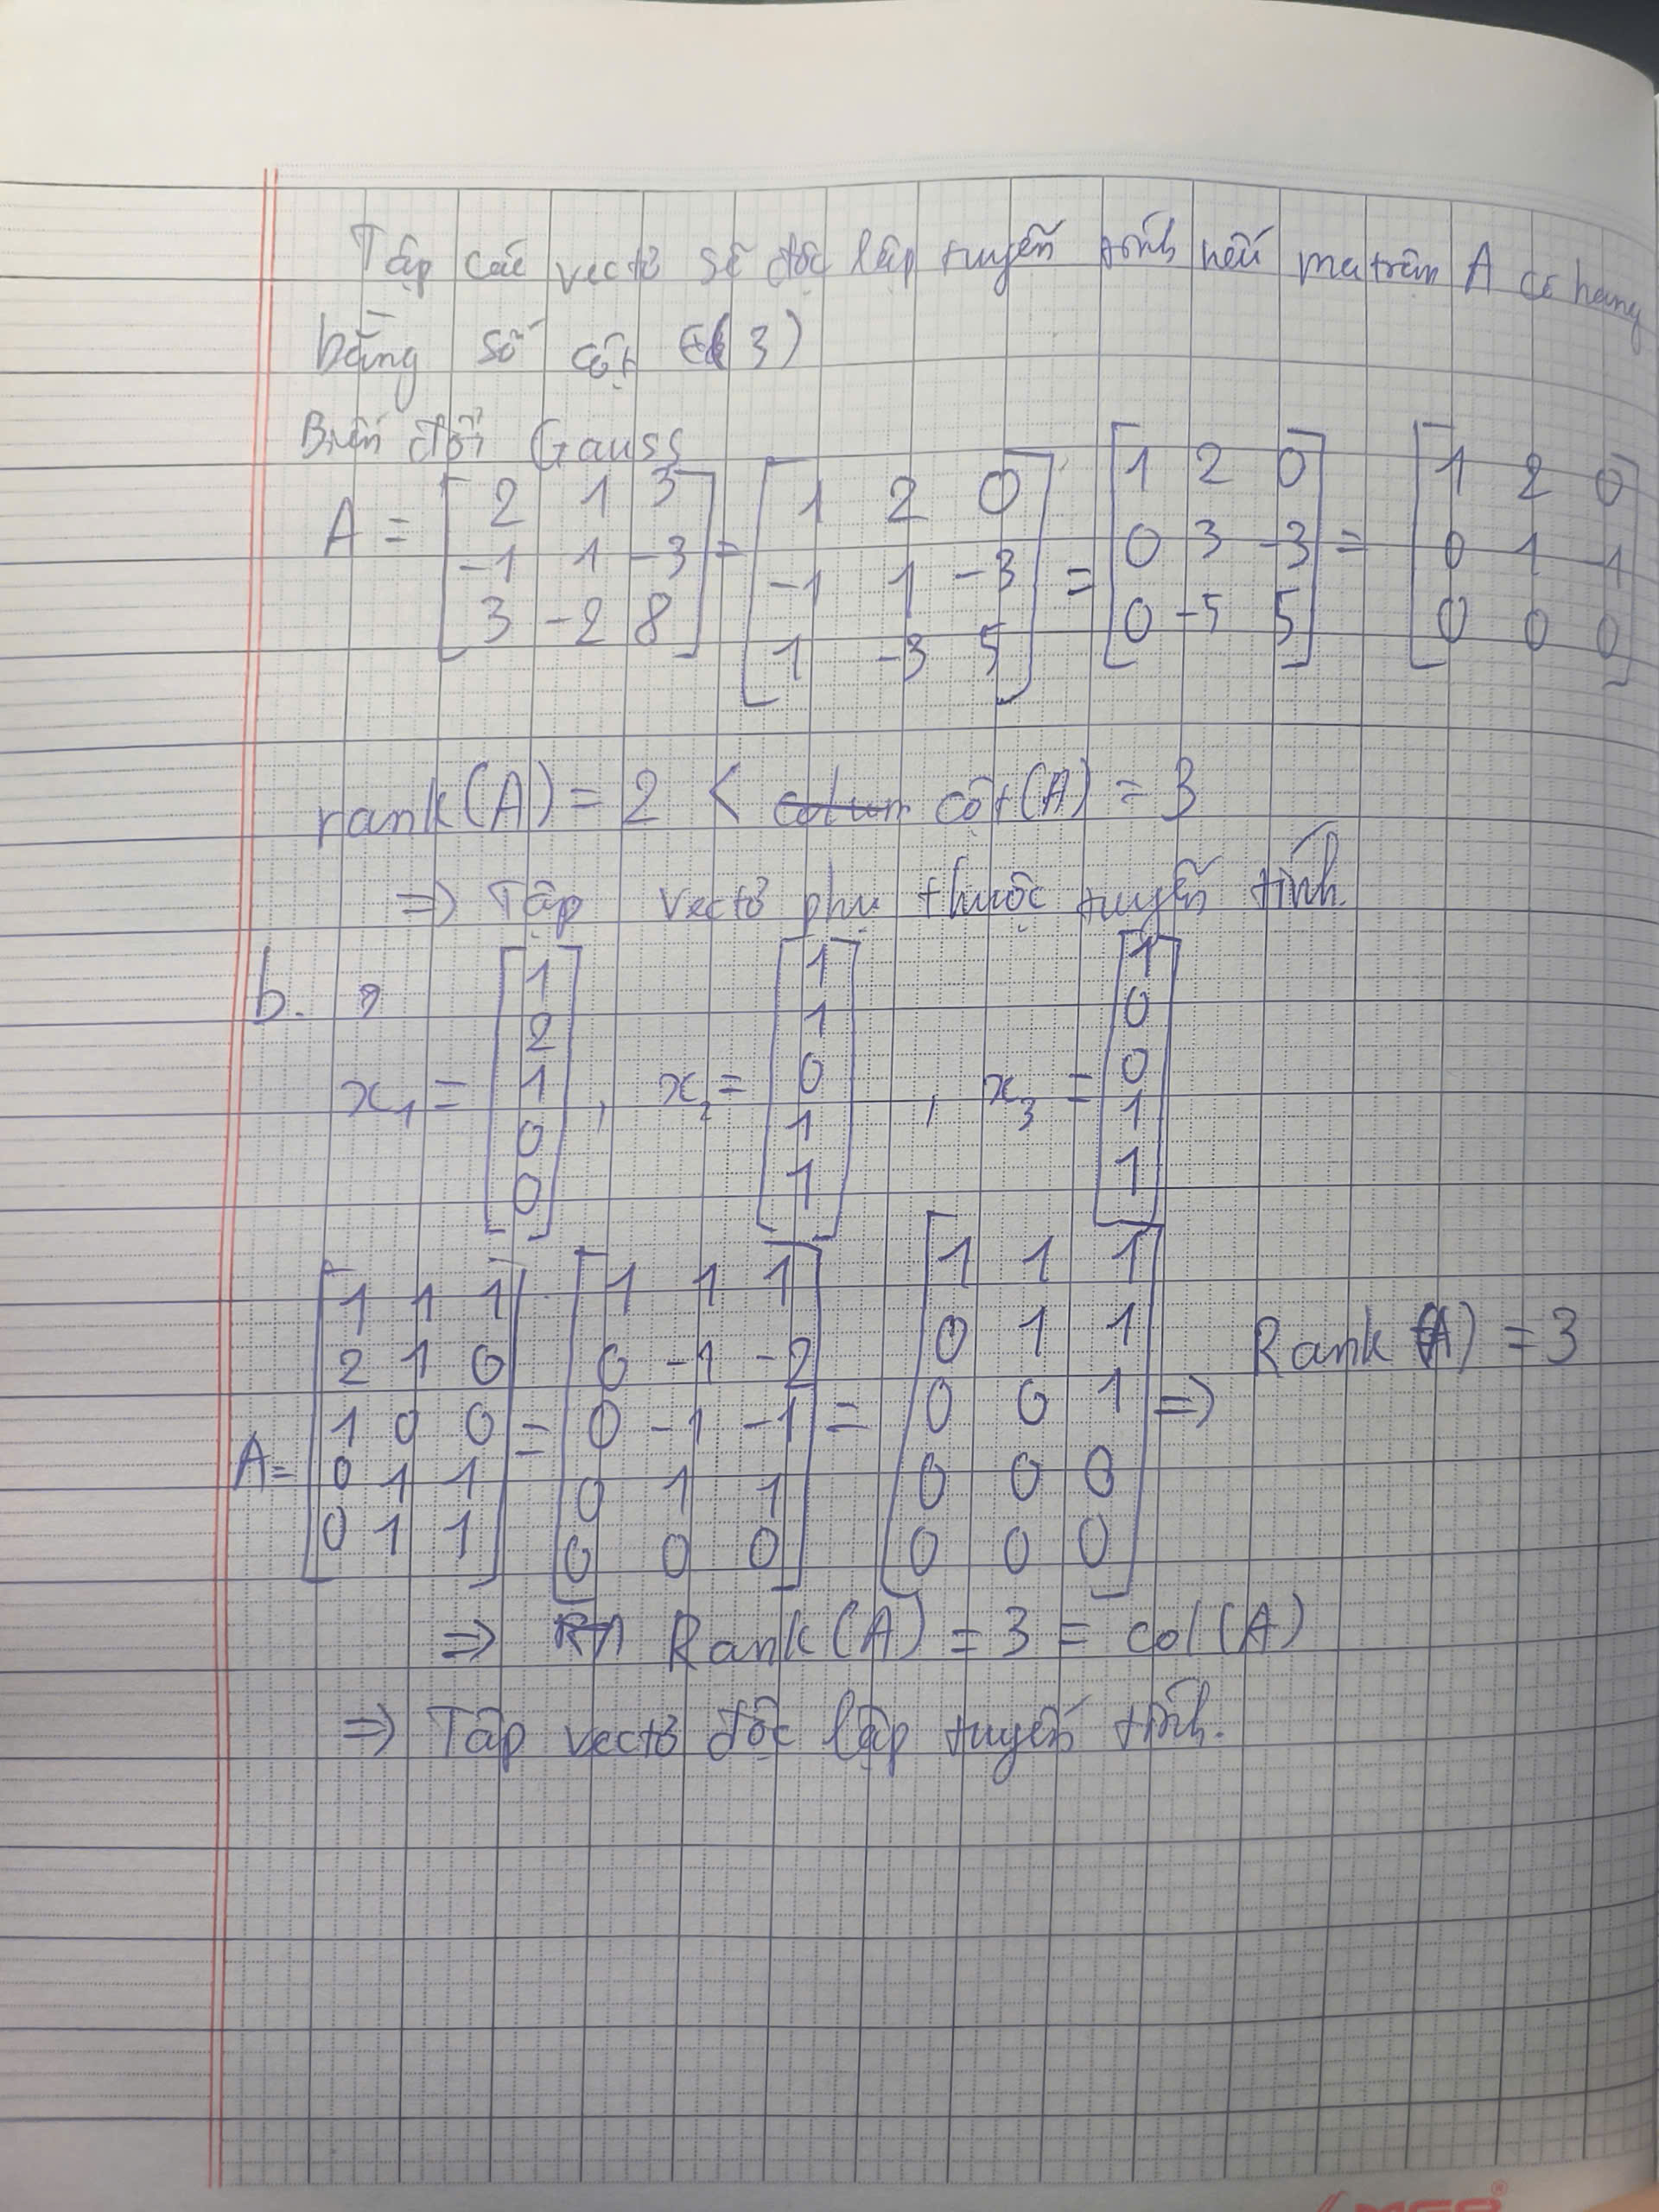 Tập các vectơ sẽ độc lập tuyến tính nếu ma trận A có hạng
bằng số cột (3)
Biến đổi Gauss
A = [2 1 3; -1 1 -3; 3 -2 8] = [1 2 0; -1 1 -3; 1 -3 5] = [1 2 0; 0 3 -3; 0 -5 5] = [1 2 0; 0 1 -1; 0 0 0]
rank(A) = 2 < cột(A) = 3
=> Tập vectơ phụ thuộc tuyến tính.
b.
x₁ = [1; 2; 1; 0; 0], x₂ = [1; 1; 0; 1; 1], x₃ = [1; 0; 0; 1; 1]
A = [1 1 1; 2 1 0; 1 0 0; 0 1 1; 0 1 1] = [1 1 1; 0 -1 -2; 0 -1 -1; 0 1 1; 0 0 0] = [1 1 1; 0 1 1; 0 0 1; 0 0 0; 0 0 0] => Rank(A) = 3
=> Rank(A) = 3 = col(A)
=> Tập vectơ độc lập tuyến tính.